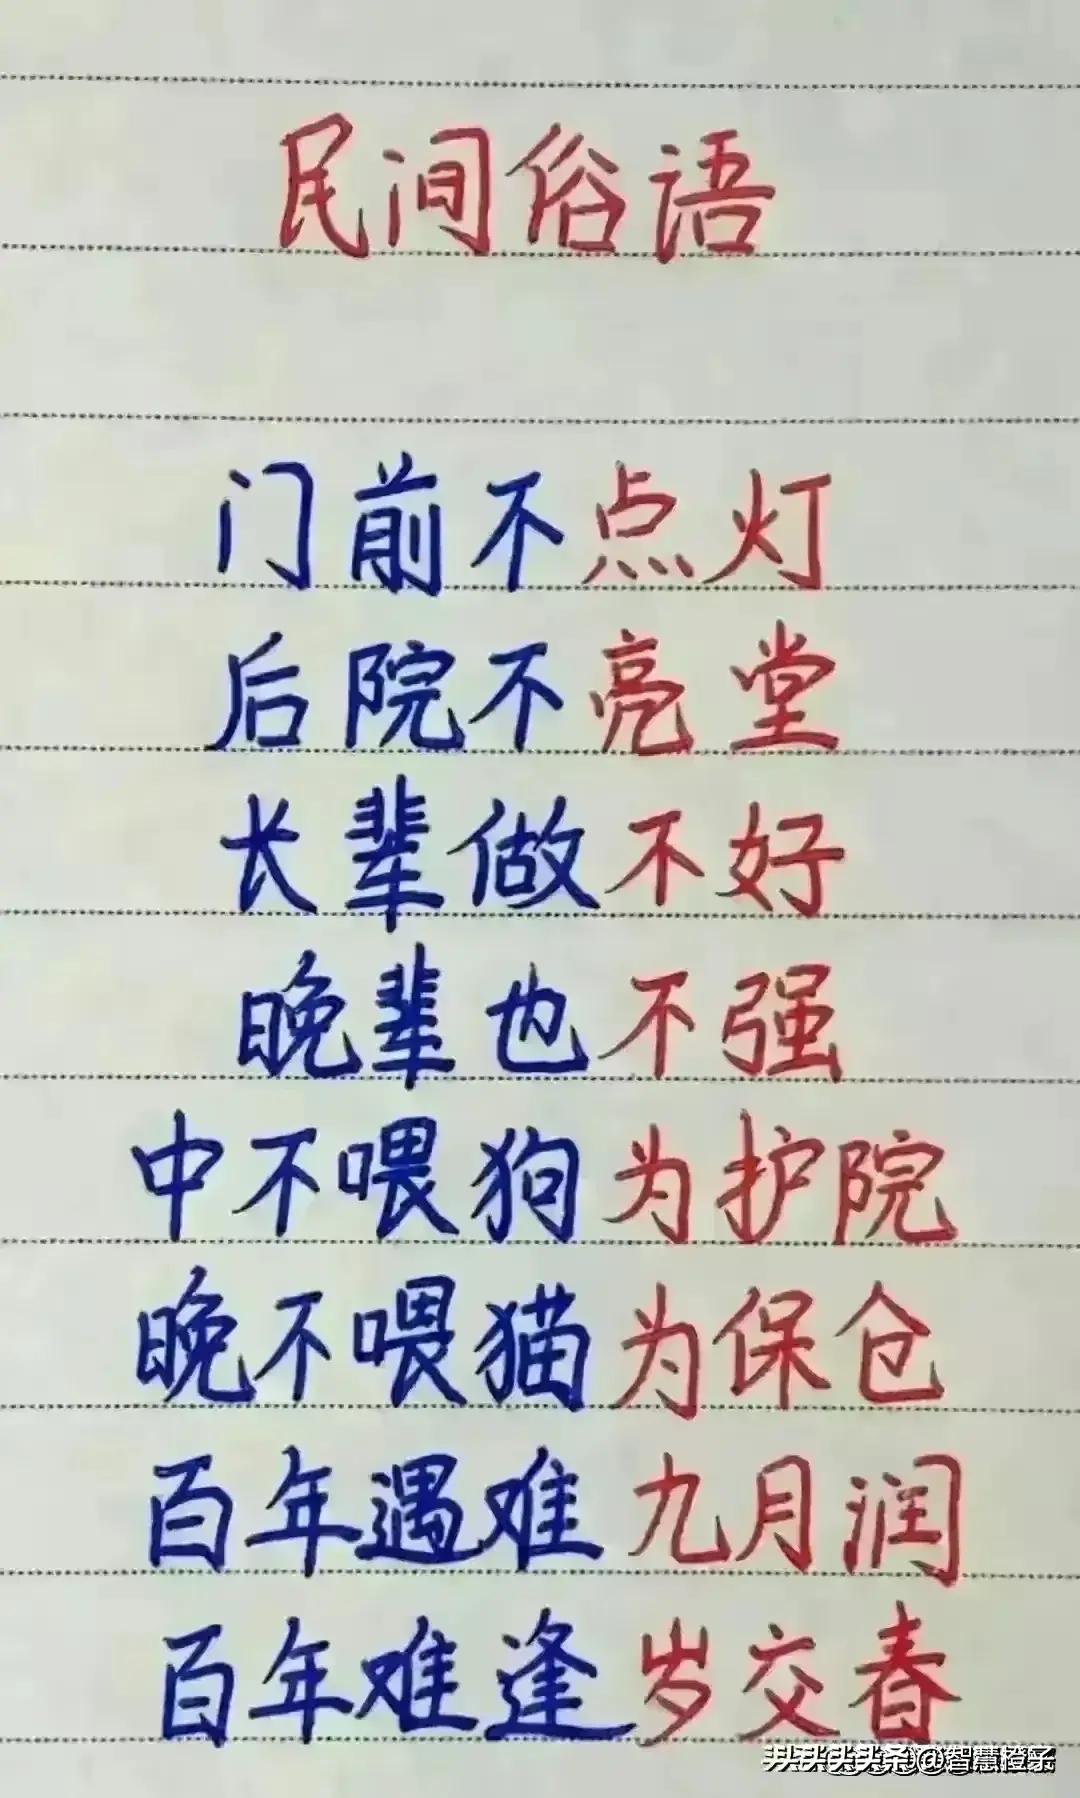 民间俗语
门前不点灯
后院不亮堂
长辈做不好
晚辈也不强
中不喂狗为护院
晚不喂猫为保仓
百年遇难九月润
百年难逢岁交春
@智慧橙子